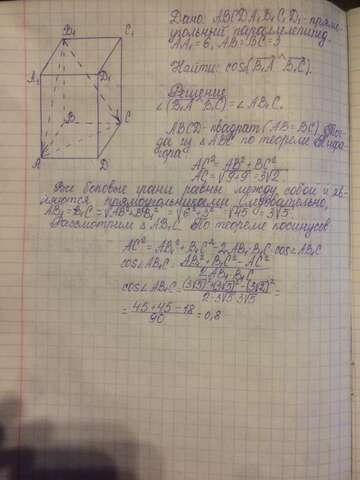 B₁ C₁
A₁ D₁
B C
A D
Дано: ABCDA₁B₁C₁D₁ - прямо-
угольный параллелепипед.
AA₁ = 6, AB = BC = 3
Найти: cos(B₁A ^ B₁C).
Решение
∠(B₁A ^ B₁C) = ∠AB₁C.
ABCD - квадрат (AB = BC). Тог-
да из △ABC по теореме Пифа-
гора:
AC² = AB² + BC²
AC = √9+9 = 3√2
Все боковые грани равны между собой и яв-
ляются прямоугольниками. Следовательно,
AB₁ = B₁C = √AB² + BB₁² = √6² + 3² = √45 = 3√5.
Рассмотрим △AB₁C. По теореме косинусов
AC² = AB₁² + B₁C² - 2·AB₁·B₁C·cos∠AB₁C
cos∠AB₁C = (AB₁² + B₁C² - AC²) / (2·AB₁·B₁C)
cos∠AB₁C = ((3√5)² + (3√5)² - (3√2)²) / (2·3√5·3√5) =
= (45 + 45 - 18) / 90 = 0,8